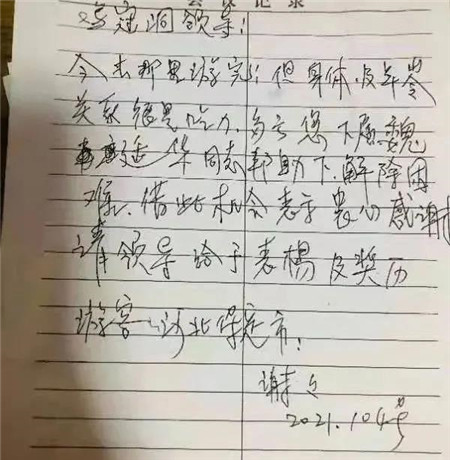 会议记录
洞领导：
今去那里游完 但身体及年令
关系很是吃力，多亏您下属魏
廷华同志帮助下，解除困
难，借此机会表示衷心感谢
请领导给予表楊及奖历
游客：河北保定市：
谢
2021.10 4号